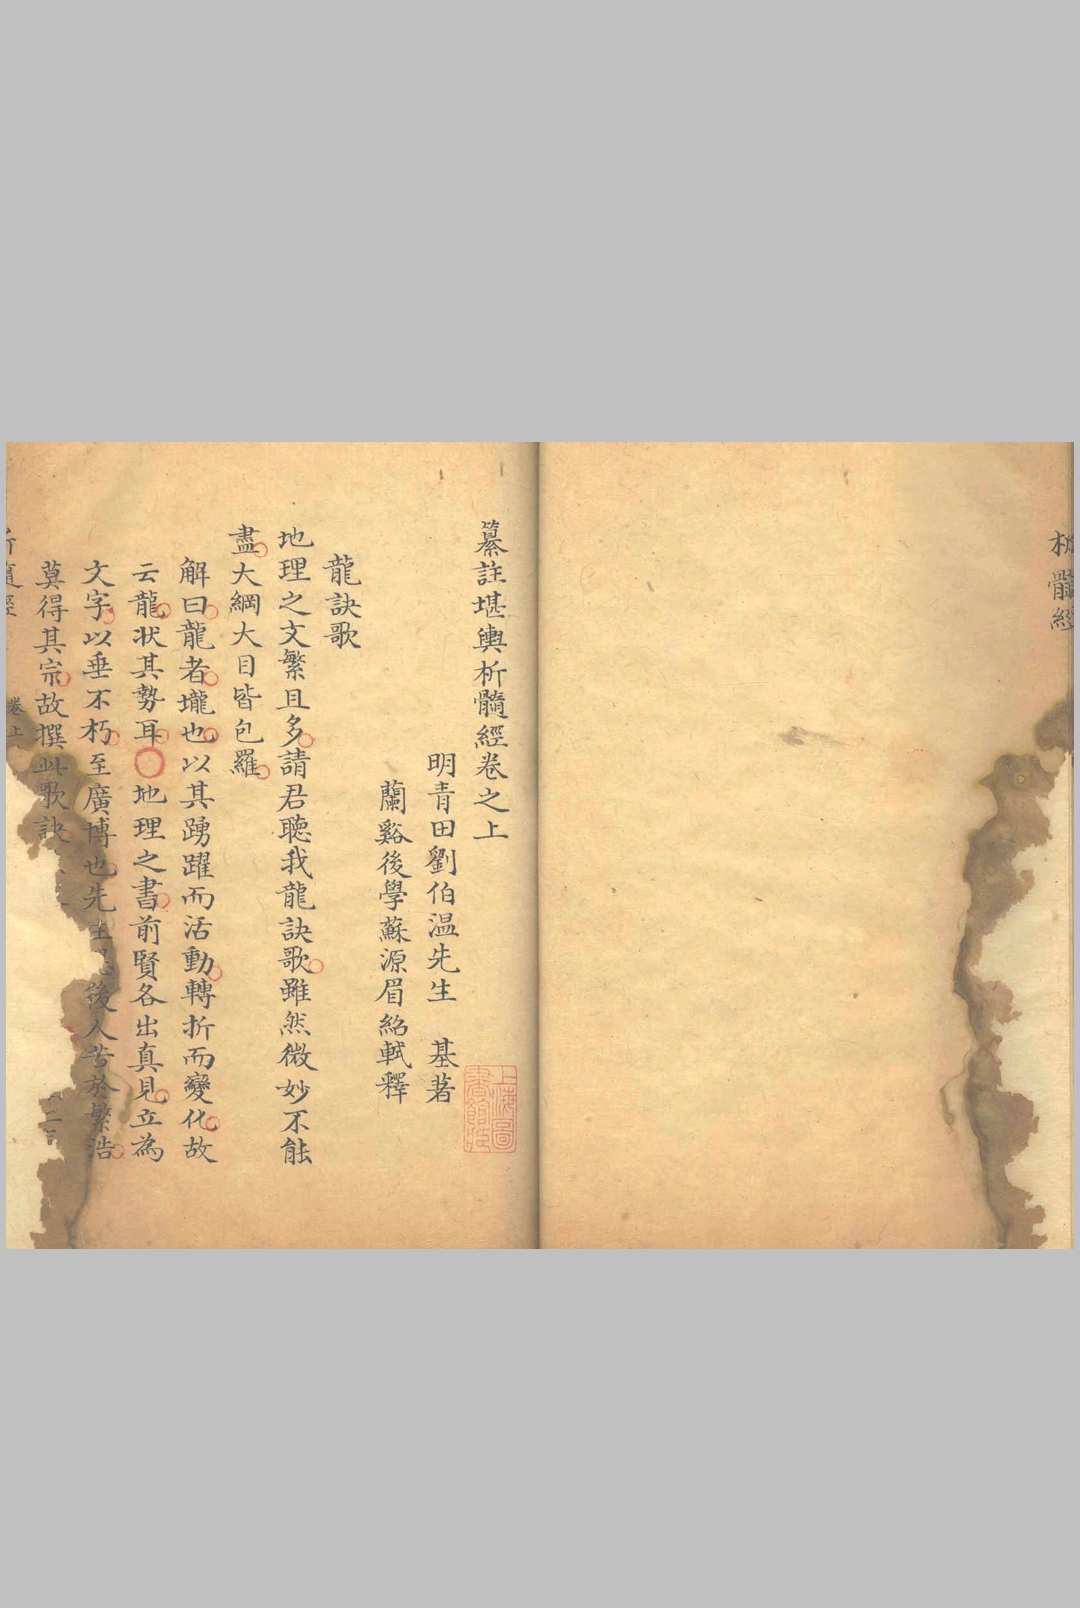 析髓經
纂註堪輿析髓經卷之上
明青田劉伯温先生　基著
蘭谿後學蘇源眉絈軾釋
龍訣歌
地理之文繁且多請君聽我龍訣歌雖然微妙不能
盡大綱大目皆包羅
解曰龍者壠也以其踴躍而活動轉折而變化故
云龍状其勢耳○地理之書前賢各出真見立為
文字以垂不朽至廣博也先生後人苦於繁浩
莫得其宗故撰此歌訣
卷上
上海圖書館藏